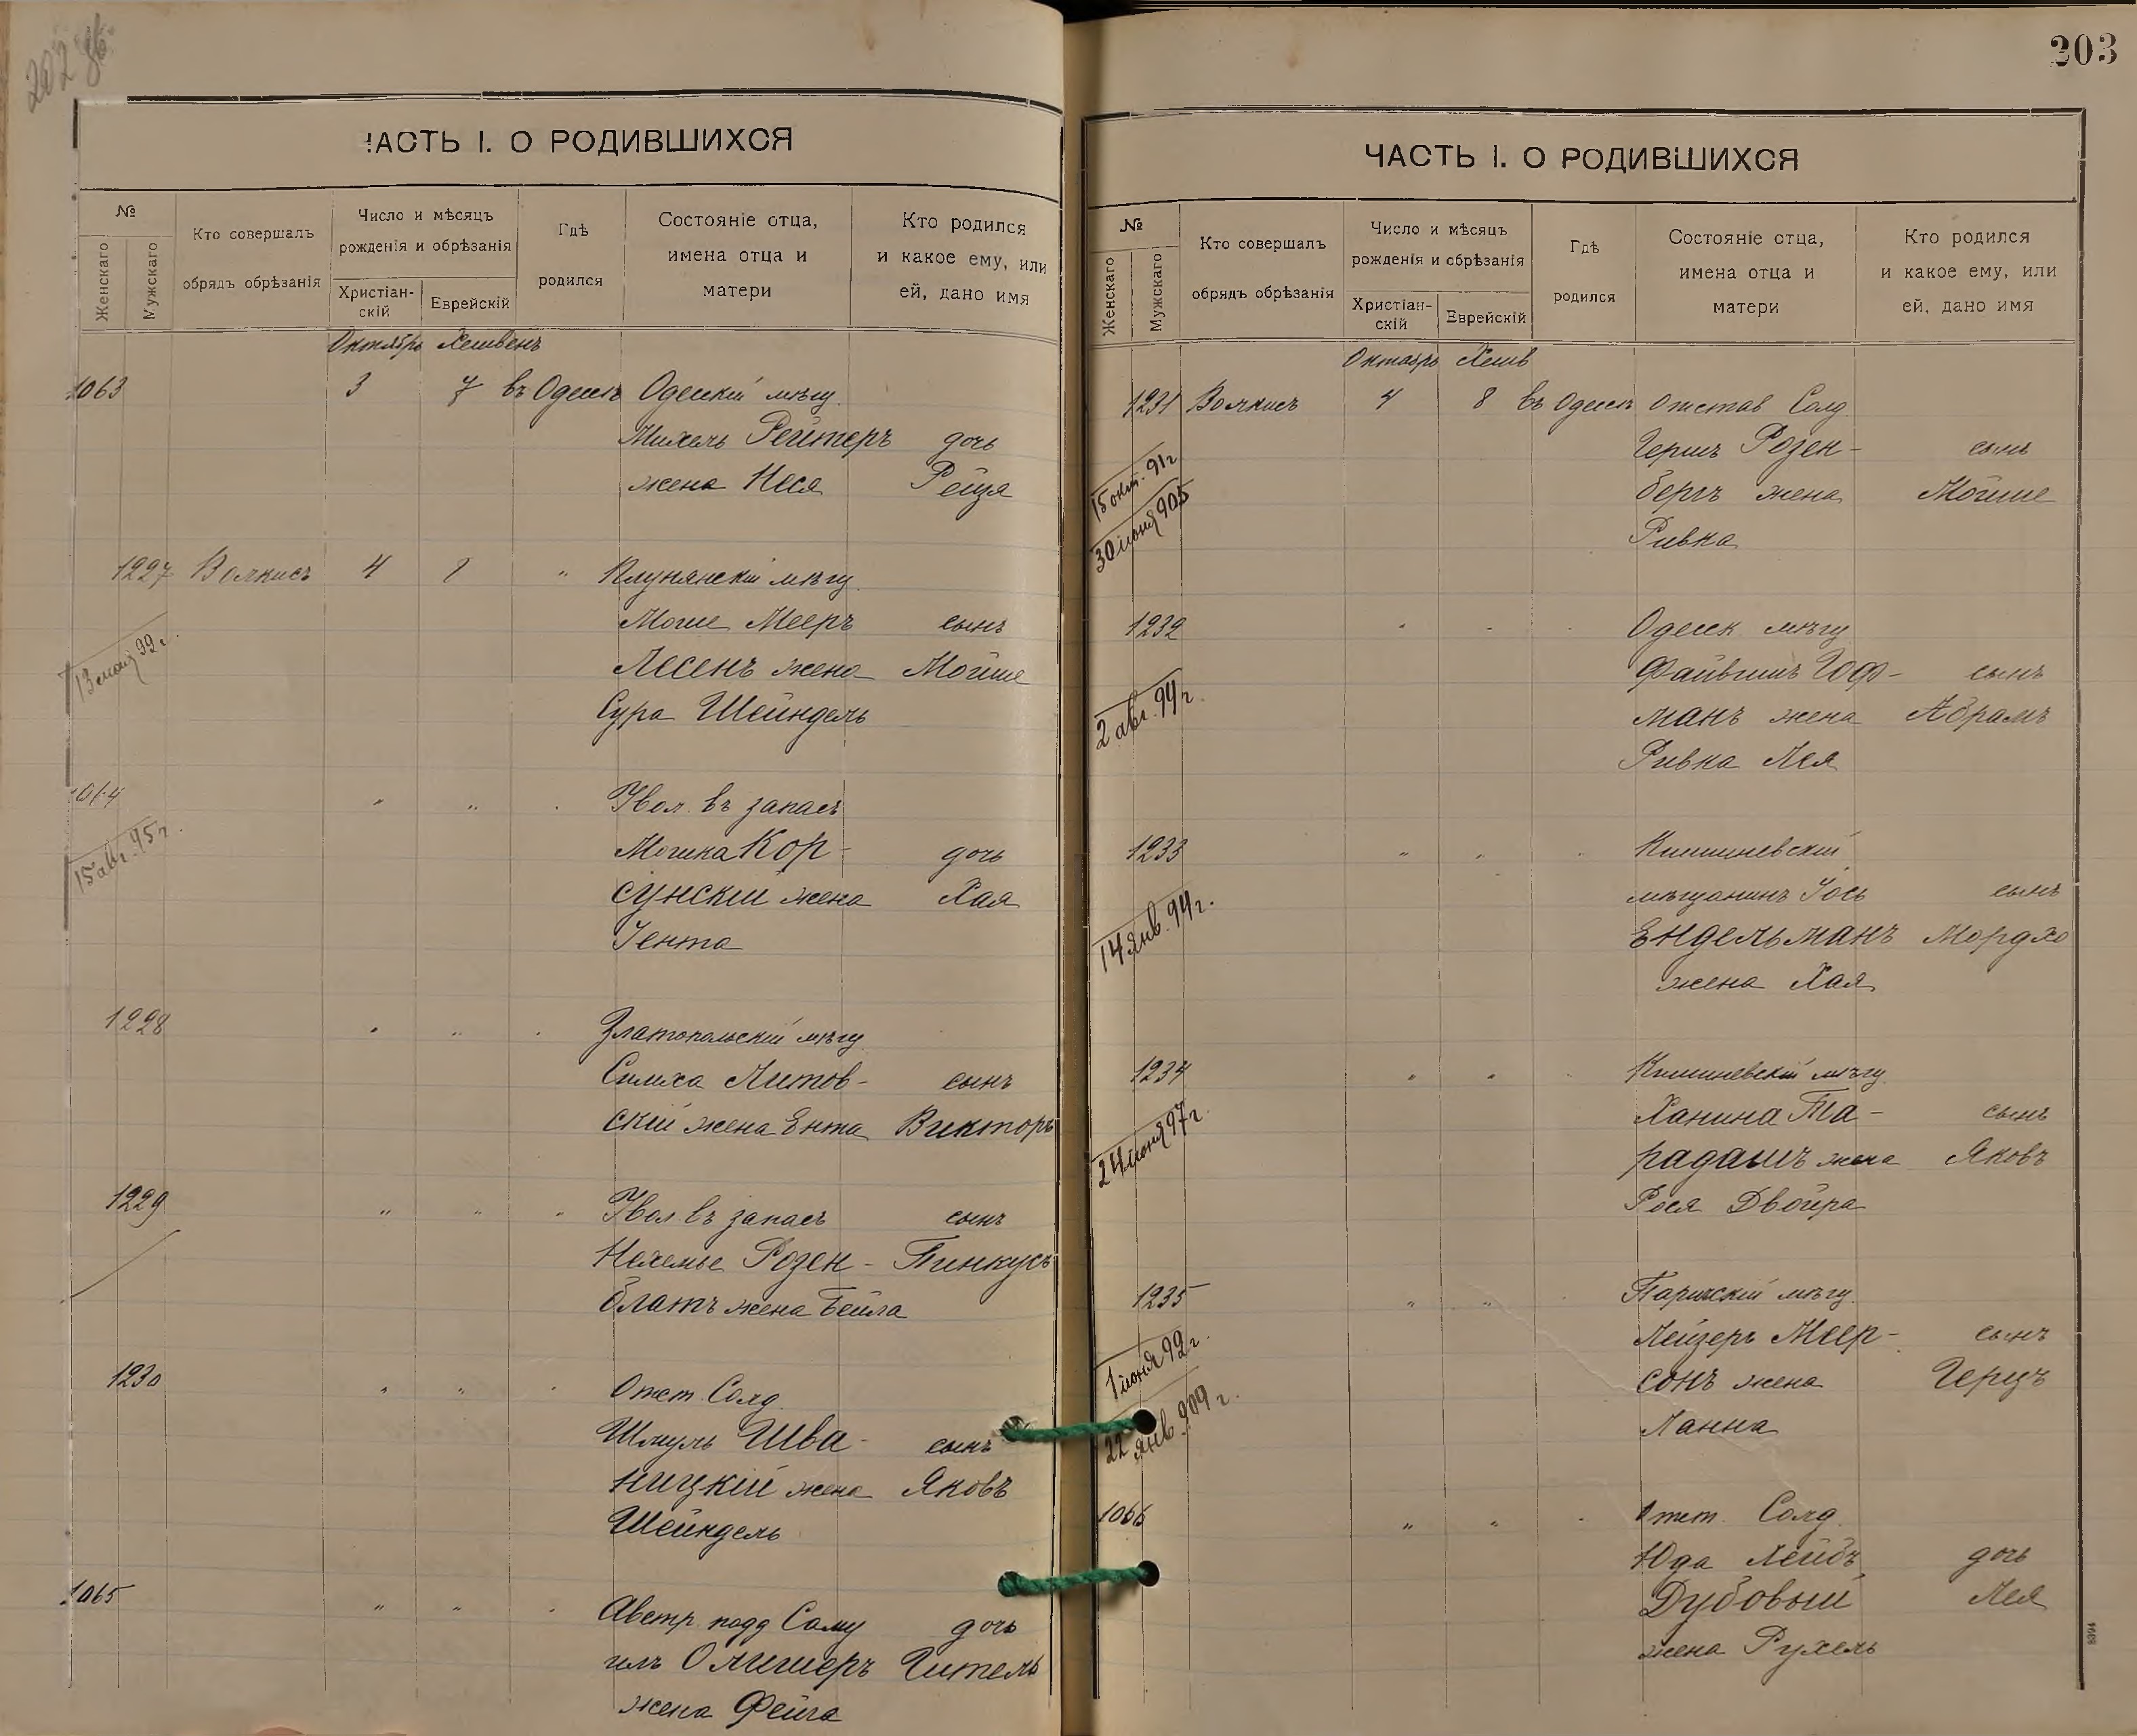 202 об.
ЧАСТЬ I. О РОДИВШИХСЯ
№
Женскаго
Мужскаго
Кто совершалъ
обрядъ обрѣзанія
Число и мѣсяцъ
рожденія и обрѣзанія
Христіан-
скій
Еврейскій
Гдѣ
родился
Состояніе отца,
имена отца и
матери
Кто родился
и какое ему, или
ей, дано имя
Октябрь Хешвенъ
1063 3 7 въ Одессѣ Одесскій мѣщ.
Михель Рейтеръ дочь
жена Неся Рейзя
1227 Волкисъ 4 8 " мѣщ.
Моше Мееръ сынъ
Лесенъ жена Мойше
13 99 г.
Сура Шейндель
1064 " " " Увол. въ запасъ
15 авг. 95 г.
Мошка Кор- дочь
сунскій жена Хая
Іента
1228 " " " Златопольскій мѣщ.
Симха Литов- сынъ
скій жена Ента Викторъ
1229 " " " Увол въ запасъ сынъ
Нехемье Розен- Пинкусъ
блатъ жена Бейла
1230 " " " Отст. Солд.
Шмуль Шва- сынъ
ницкій жена Яковъ
Шейндель
1065 " " " Австр подд Саму дочь
илъ Олишеръ Гитель
жена Фейга
203
ЧАСТЬ I. О РОДИВШИХСЯ
№
Женскаго
Мужскаго
Кто совершалъ
обрядъ обрѣзанія
Число и мѣсяцъ
рожденія и обрѣзанія
Христіан-
скій
Еврейскій
Гдѣ
родился
Состояніе отца,
имена отца и
матери
Кто родился
и какое ему, или
ей, дано имя
Октябрь Хешв
1231 Волкисъ 4 8 въ Одессѣ Отстав Солд
15 окт. 91 г
Гершъ Розен- сынъ
30 іюня 905
бергъ жена Мойше
Ривка
1232 " " " Одесск мѣщ
Файвишъ Гоф- сынъ
2 авг. 99 г.
манъ жена Абрамъ
Ривка Лея
1233 " " " Кишиневскій
мѣщанинъ Іось сынъ
14 янв. 94 г.
Ендельманъ Мордхо
жена Хая
1234 " " " Кишиневскій мѣщ
Ханина Та- сынъ
24 іюня 97 г
радашъ жена Яковъ
Рося Двойра
1235 " " " Паричскій мѣщ.
Лейзеръ Меер- сынъ
1 іюня 92 г.
сонъ жена Герцъ
22 янв 909 г.
Ханна
1066 " " " Отст. Солд.
Юда Лейбъ дочь
Дубовый Лея
жена Рухель
8394